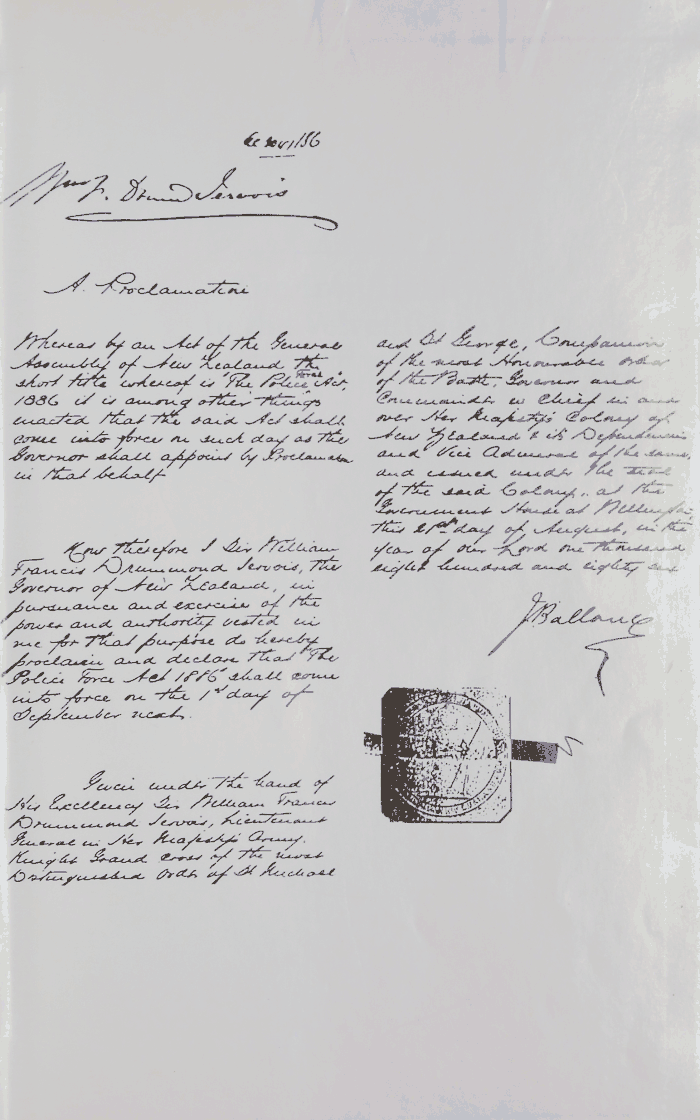 Wm F. Drummd Jervois
A Proclamation
Whereas by an Act of the General
Assembly of New Zealand, the
short title whereof is The Police Force Act,
1886 it is among other things
enacted that the said Act shall
come into force on such day as the
Governor shall appoint by Proclamation
in that behalf
Now therefore I Sir William
Francis Drummond Jervois, the
Governor of New Zealand, in
pursuance and exercise of the
power and authority vested in
me for that purpose do hereby
proclaim and declare that "The
Police Force Act 1886" shall come
into force on the 1st day of
September next.
Given under the hand of
His Excellency Sir William Francis
Drummond Jervois, Lieutenant
General in Her Majesty's Army.
Knight Grand Cross of the most
Distinguished Order of St Michael
and St George, Companion
of the most Honourable Order
of the Bath, Governor and
Commander in Chief in and
over Her Majesty's Colony of
New Zealand & its Dependencies
and Vice Admiral of the same,
and issued under the seal
of the said Colony, at the
Government House at Wellington
this 21st day of August, in the
year of our Lord one thousand
eight hundred and eighty six
J Ballance